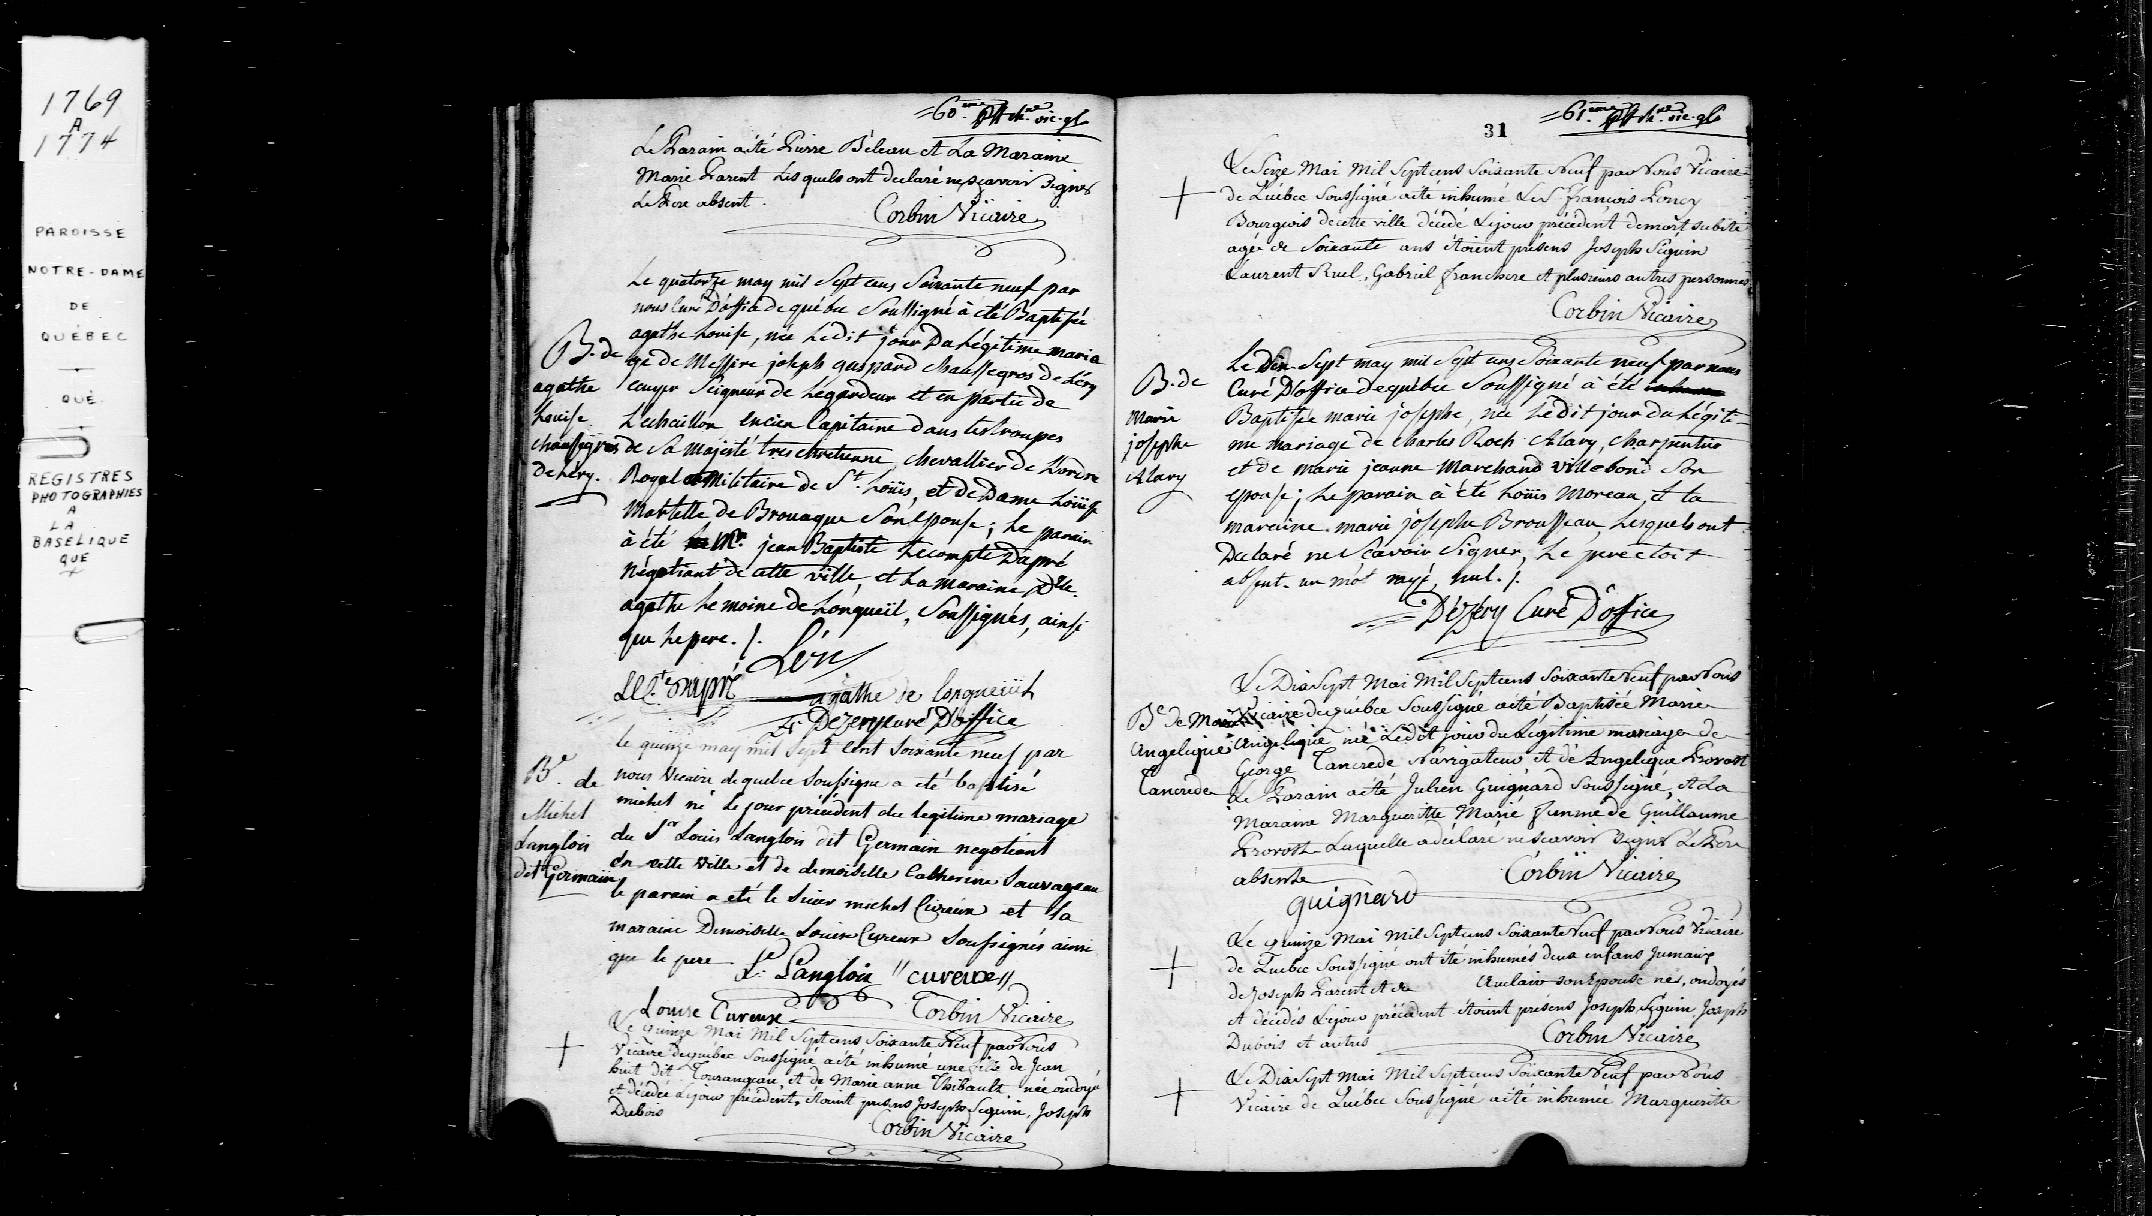 1769
A
1774
PAROISSE
NOTRE-DAME
DE
QUÉBEC
QUÉ.
REGISTRES
PHOTOGRAPHIES
A
LA
BASELIQUE
QUE
=60.eme vic. gl
Le Parain a été Pierre Béleau et La Maraine
Marie Parent Lesquels ont declaré ne sçavoir signer
Le Pere absent.
Corbin Vicaire
B. de
agathe
Louise
Chaussegros
De Léry.
Le quatorze may mil Sept cens Soixante neuf par
nous Curé D'office de québec Soussigné à été Baptisée
agathe Louise, née Le dit jour Du Légitime maria
ge de Messire joseph gaspard Chaussegros de Léry
ecuyer Seigneur de Legardeur et en partie de
L'echaillon encien Capitaine dans les troupes
de Sa Majesté tres chretienne, chevallier de L'ordre
Royal et Militaire de St. Loüis, et de Dame Loüise
Martelle de Brouague Son épouse; Le parain
à été Mr. jean Baptiste Lecompte Dupré
Négotiant de cette ville, et La maraine Dlle.
agathe Le moine de Longueüil, Soussignés, ainsi
que Le pere. /.
Léry
LCte Dupré
agathe de longueüil
Dezery curé D'office
Be. de
Michel
Langlois
dit Germain
le quinze may mil sept cent soixante neuf par
nous Vicaire de quebec soussigne a été baptisé
michel né le jour précédent du legitime mariage
du Sr Louis Langlois dit Germain negotiant
en cette ville et de demoiselle Catherine Sauvageau
le parain a été le Sieur michel Cureux et la
maraine Demoiselle Louise Cureux soussignés ainsi
que le pere
Ls. Langlois // cureux //
Louise Cureux
Corbin Vicaire
+
Le quinze Mai Mil Sept cens Soixante Neuf par Nous
Vicaire de québec soussigné a été inhumé une fille de Jean
huit dit Tourangeau, et de Marie anne Thibault, née ondoyé
et décédée Le jour précédent, étoient présens Joseph Seguin, Joseph
Dubois
Corbin Vicaire
=61.eme vic. gl
31
+
Le Seize Mai Mil Sept cens Soixante Neuf par Nous Vicaire
de Québec Soussigné a été inhumé Le Sr françois Poncy
Bourgeois de cette ville décédé Le jour précédent de mort subite
agée de Soixante ans étoient présens Joseph Séguin
Laurent Ruel, Gabriel franchere et plusieurs autres personnes
Corbin Vicaire
B. de
Marie
josephe
Alary
Le Dix Sept may mil Sept cens Soixante neuf par nous
Curé D'office de québec Soussigné à été
Baptisée marie josephe, née Le dit jour du Légiti-
me mariage de Charles Roch Alary, charpentier
et de marie jeanne Marchand villebond Son
épouse; Le parain à été Loüis Moreau, et la
maraine marie josephe Brousseau, Lesquels ont
Declaré ne Scavoir Signer, Le pere etoit
absent. un mot rayé, nul. /.
Dézéry Curé D'office
Be De Marie
Angelique
Tancrede
Le Dix Sept Mai Mil Sept cens Soixante Neuf par Nous
Vicaire de québec Soussigné a été Baptisée Marie
Angelique née Le dit jour du Légitime mariage de
George Tancrede Navigateur et de Angelique Provost
Le Parain a été Julien Guignard soussigné, et La
Maraine Margueritte Marié femme de Guillaume
Provost Laquelle a déclaré ne scavoir signer Le Pere
absent
Corbin Vicaire
guignard
+
Le quinze Mai Mil Sept cens Soixante Neuf par Nous Vicaire
de Québec Soussigné ont été inhumés deux enfans Jumaux
de Joseph Parent et de Auclair son Epouse nés, ondoyés
et décédés Le jour précédent étoient présens Joseph Seguin, Joseph
Dubois et autres
Corbin Vicaire
+
Le Dix Sept Mai Mil Sept cens Soixante Neuf par Nous
Vicaire de Québec Soussigné a été inhumée Margueritte